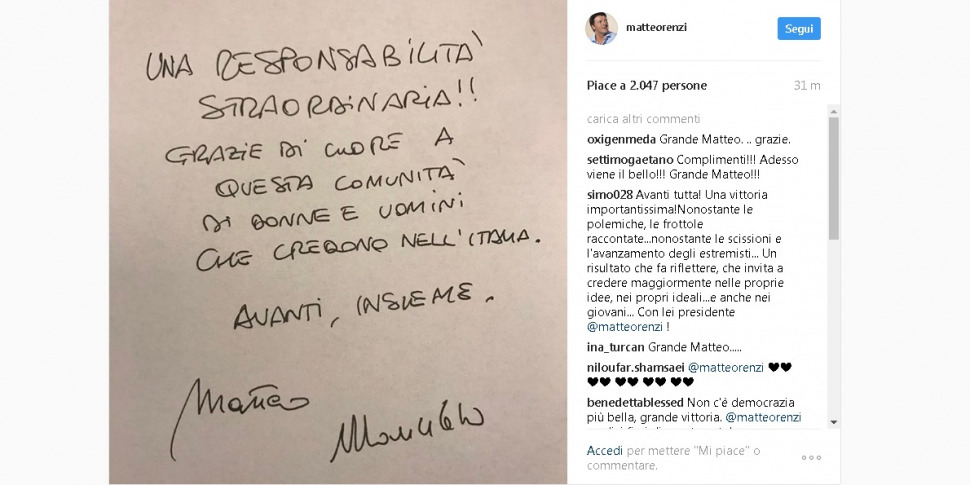 UNA RESPONSABILITÀ
STRAORDINARIA!!
GRAZIE DI CUORE A
QUESTA COMUNITÀ
DI DONNE E UOMINI
CHE CREDONO NELL'ITALIA.
AVANTI, INSIEME.
Matteo
Maurizio
matteorenzi
Segui
Piace a 2.047 persone
31 m
carica altri commenti
oxigenmeda Grande Matteo. .. grazie.
settimogaetano Complimenti!!! Adesso
viene il bello!!! Grande Matteo!!!
simo028 Avanti tutta! Una vittoria
importantissima!Nonostante le
polemiche, le frottole
raccontate...nonostante le scissioni e
l'avanzamento degli estremisti... Un
risultato che fa riflettere, che invita a
credere maggiormente nelle proprie
idee, nei propri ideali...e anche nei
giovani... Con lei presidente
@matteorenzi !
ina_turcan Grande Matteo.....
niloufar.shamsaei @matteorenzi 🖤🖤
🖤🖤 🖤🖤 🖤🖤 🖤🖤
benedettablessed Non c'é democrazia
più bella, grande vittoria. @matteorenzi
Accedi per mettere "Mi piace" o
commentare.